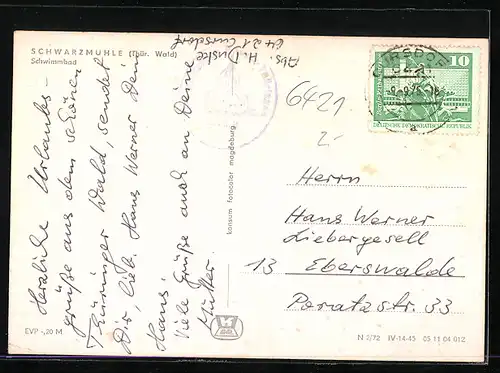 SCHWARZMÜHLE (Thür. Wald)
Schwimmbad
Abs. H. Duske
6421 Cursdorf
Herzliche Urlaubs-
grüße aus dem schönen
Thüringer Wald, sendet
Dir, lieb. Hans Werner Dein
Hans.
Viele Grüße auch an Deine
Mutter.
EVP -,20 M
konsum fotocolor magdeburg
6421
10
DEUTSCHE DEMOKRATISCHE REPUBLIK
a
Herrn
Hans Werner
Liebergesell
13 Eberswalde
Poratzstr. 33
N 2/72 IV-14-45 05 11 04 012